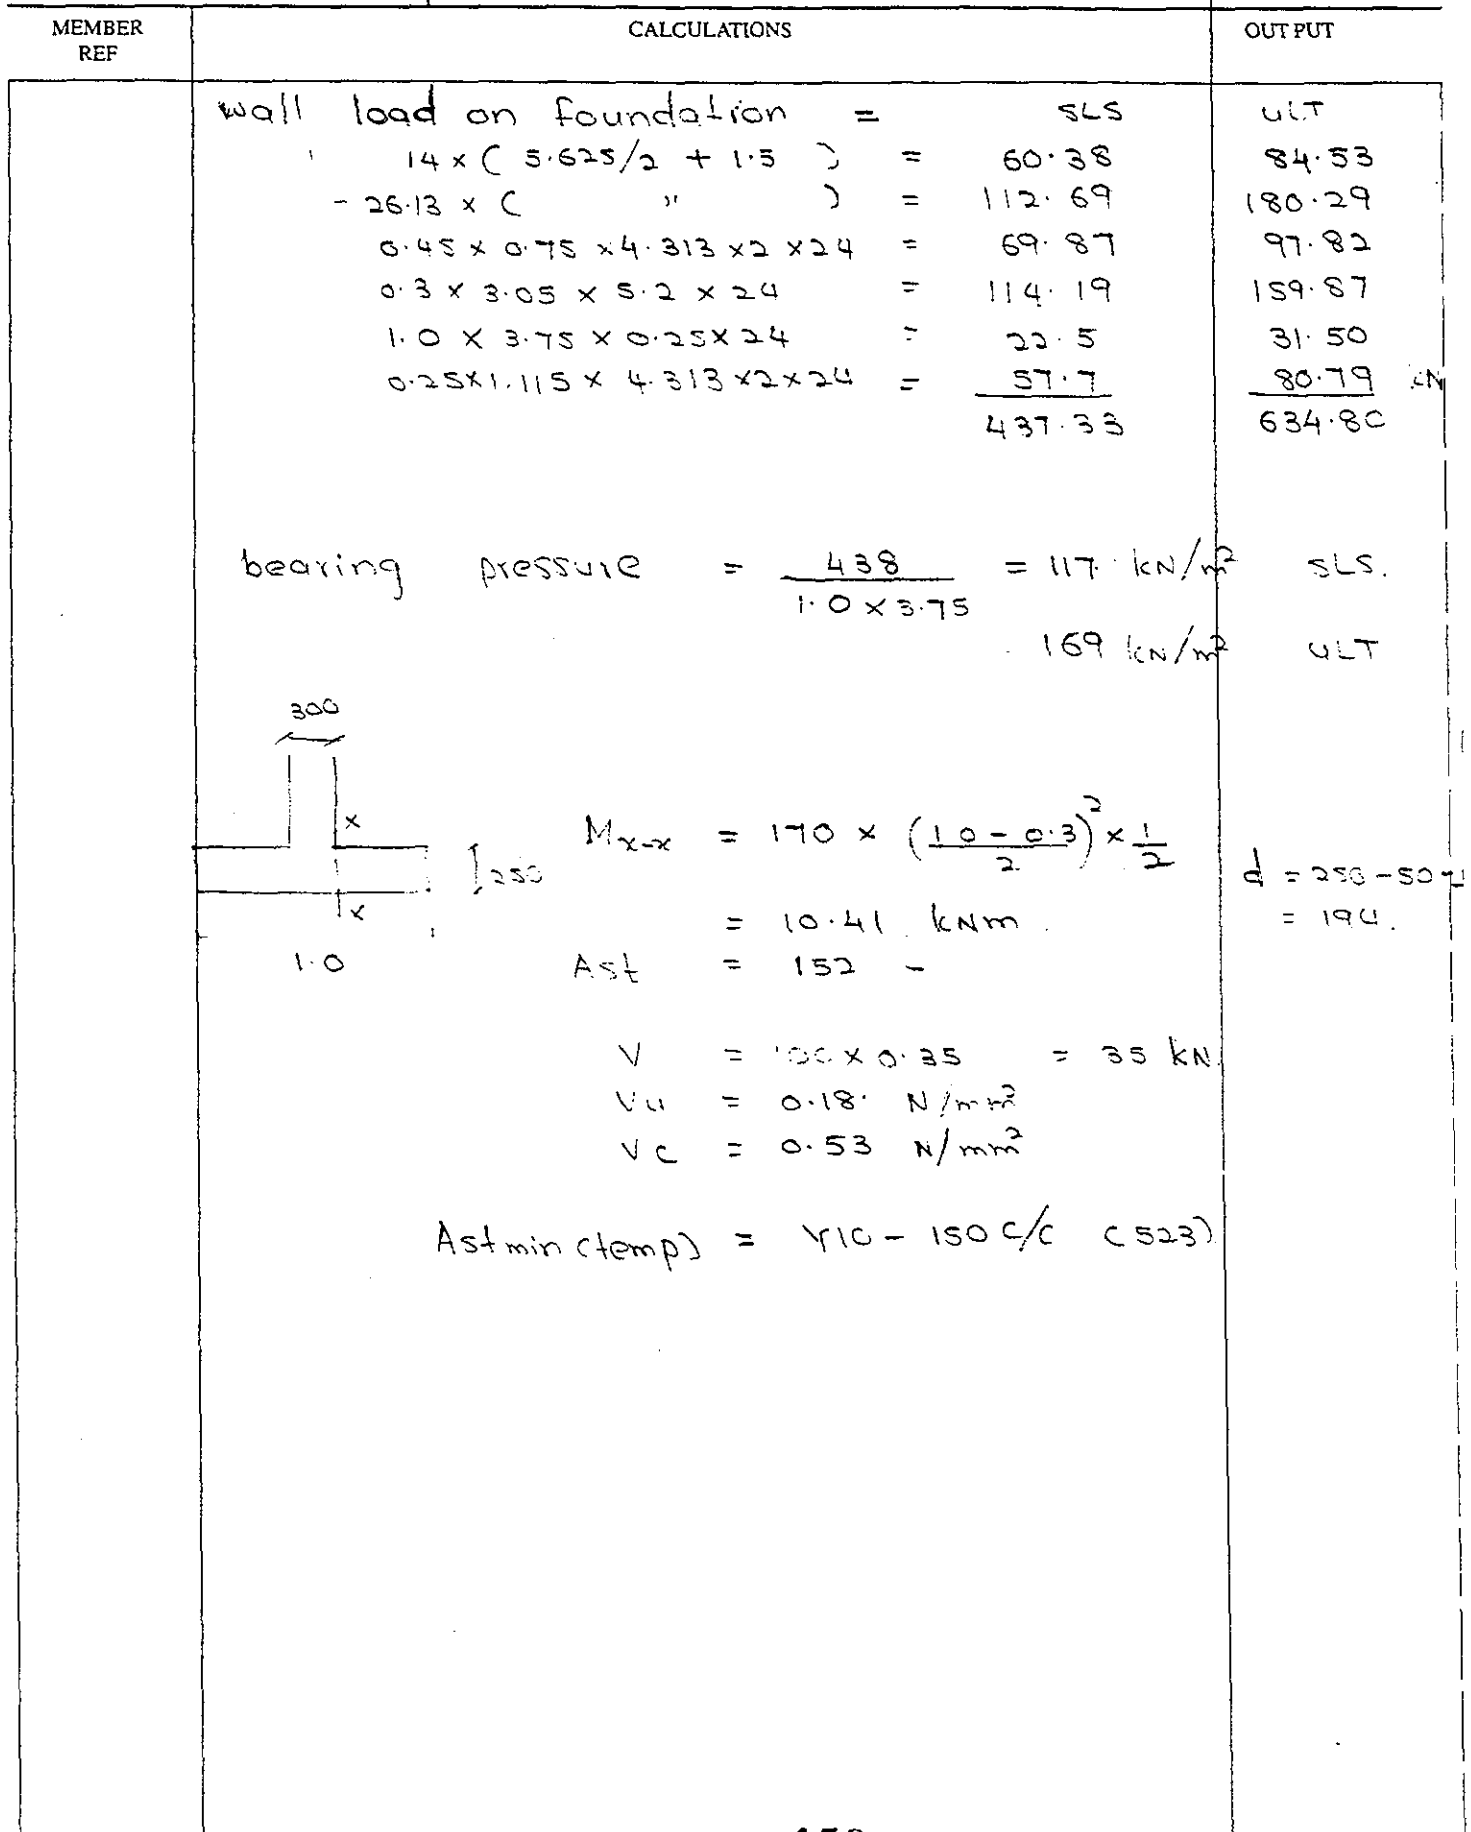 MEMBER REF CALCULATIONS OUTPUT
wall load on foundation = SLS ULT
14 × ( 5.625/2 + 1.5 ) = 60.38 84.53
- 26.13 × ( " ) = 112.69 180.29
0.45 × 0.75 × 4.313 × 2 × 24 = 69.87 97.82
0.3 × 3.05 × 5.2 × 24 = 114.19 159.87
1.0 × 3.75 × 0.25 × 24 = 22.5 31.50
0.25×1.115 × 4.313 ×2×24 = 57.7 80.79 kN
437.33 634.80
bearing pressure = 438 / 1.0 × 3.75 = 117. kN/m² SLS.
169 kN/m² ULT
300
x
250
x
1.0
Mx-x = 170 × (1.0 - 0.3 / 2)² × 1/2
d = 250 - 50 -
= 10.41 kNm.
= 194.
Ast = 152 -
V = 100 × 0.35 = 35 kN.
Vu = 0.18. N/mm²
Vc = 0.53 N/mm²
Ast min (temp) = Y10 - 150 c/c (523)